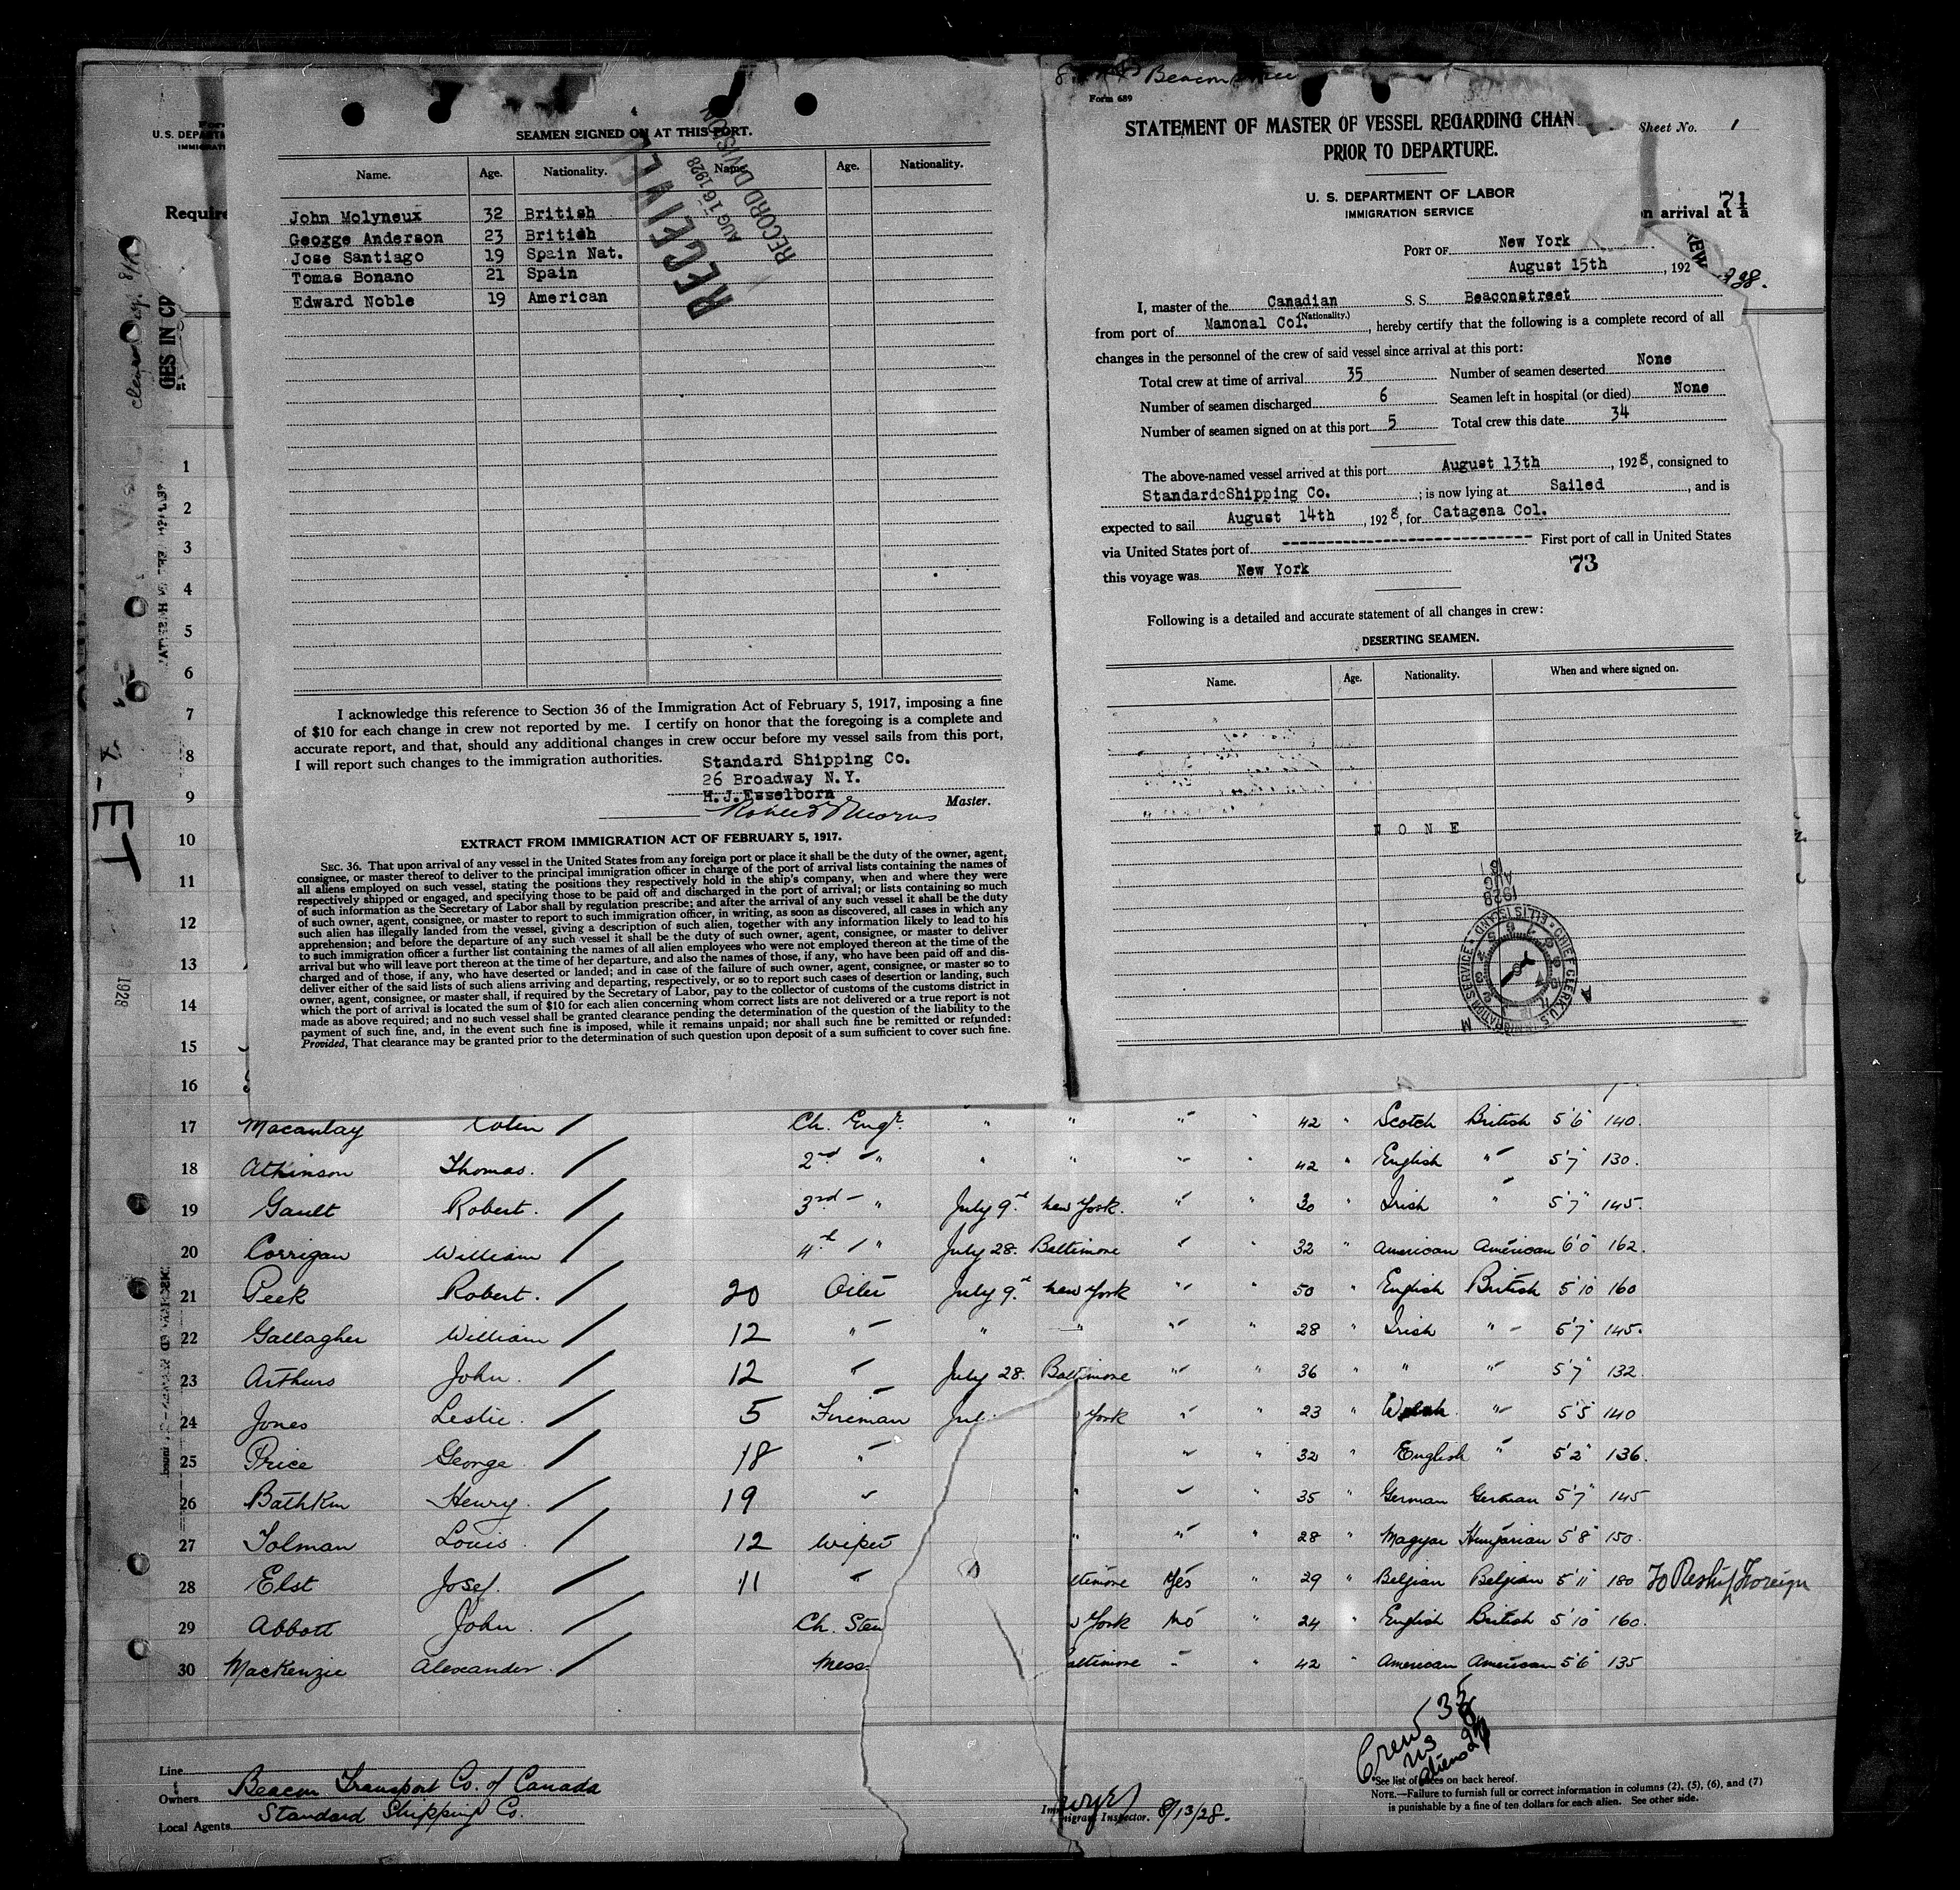 SEAMEN SIGNED ON AT THIS PORT.
Name. Age. Nationality. Name. Age. Nationality.
John Molyneux 32 British
George Anderson 23 British
Jose Santiago 19 Spain Nat.
Tomas Bonano 21 Spain
Edward Noble 19 American
RECEIVED
AUG 16 1928
RECORD DIVISION
I acknowledge this reference to Section 36 of the Immigration Act of February 5, 1917, imposing a fine
of $10 for each change in crew not reported by me. I certify on honor that the foregoing is a complete and
accurate report, and that, should any additional changes in crew occur before my vessel sails from this port,
I will report such changes to the immigration authorities.
Standard Shipping Co.
26 Broadway N.Y.
H.J.Esselborn
Master.
EXTRACT FROM IMMIGRATION ACT OF FEBRUARY 5, 1917.
SEC. 36. That upon arrival of any vessel in the United States from any foreign port or place it shall be the duty of the owner, agent,
consignee, or master thereof to deliver to the principal immigration officer in charge of the port of arrival lists containing the names of
all aliens employed on such vessel, stating the positions they respectively hold in the ship's company, when and where they were
respectively shipped or engaged, and specifying those to be paid off and discharged in the port of arrival; or lists containing so much
of such information as the Secretary of Labor shall by regulation prescribe; and after the arrival of any such vessel it shall be the duty
of such owner, agent, consignee, or master to report to such immigration officer, in writing, as soon as discovered, all cases in which any
such alien has illegally landed from the vessel, giving a description of such alien, together with any information likely to lead to his
apprehension; and before the departure of any such vessel it shall be the duty of such owner, agent, consignee, or master to deliver
to such immigration officer a further list containing the names of all alien employees who were not employed thereon at the time of the
arrival but who will leave port thereon at the time of her departure, and also the names of those, if any, who have been paid off and dis-
charged and of those, if any, who have deserted or landed; and in case of the failure of such owner, agent, consignee, or master so to
deliver either of the said lists of such aliens arriving and departing, respectively, or so to report such cases of desertion or landing, such
owner, agent, consignee, or master shall, if required by the Secretary of Labor, pay to the collector of customs of the customs district in
which the port of arrival is located the sum of $10 for each alien concerning whom correct lists are not delivered or a true report is not
made as above required; and no such vessel shall be granted clearance pending the determination of the question of the liability to the
payment of such fine, and, in the event such fine is imposed, while it remains unpaid; nor shall such fine be remitted or refunded:
Provided, That clearance may be granted prior to the determination of such question upon deposit of a sum sufficient to cover such fine.
Form 689
STATEMENT OF MASTER OF VESSEL REGARDING CHAN
PRIOR TO DEPARTURE.
Sheet No. 1
U. S. DEPARTMENT OF LABOR
IMMIGRATION SERVICE
71
n arrival at a
PORT OF New York
August 15th, 192
I, master of the Canadian S. S. Beaconstreet
(Nationality.)
from port of Mamonal Col., hereby certify that the following is a complete record of all
changes in the personnel of the crew of said vessel since arrival at this port:
Total crew at time of arrival 35 Number of seamen deserted None
Number of seamen discharged 6 Seamen left in hospital (or died) None
Number of seamen signed on at this port 5 Total crew this date 34
The above-named vessel arrived at this port August 13th, 1928, consigned to
StandardcShipping Co.; is now lying at Sailed, and is
expected to sail August 14th, 1928, for Catagena Col.
via United States port of ---------- First port of call in United States
this voyage was New York
73
Following is a detailed and accurate statement of all changes in crew:
DESERTING SEAMEN.
Name. Age. Nationality. When and where signed on.
N O N E
CHIEF CLERK U.S. IMMIGRATION SERVICE ELLIS ISLAND
U.S. DEPART
Require
GES IN
1
2
3
4
5
6
7
8
9
10
11
12
13
14
15
16
17 Macaulay Colin / Ch. Engr. " " " " 42 " Scotch British 5'6" 140.
18 Atkinson Thomas. / 2nd " " " " " 42 " English " 5'7" 130.
19 Gault Robert. / 3rd " July 9th New York. " " 30 " Irish " 5'7" 145.
20 Corrigan William / 4th " July 28. Baltimore " " 32 " American American 6'0" 162.
21 Peek Robert. / 20 Oiler July 9th New York " " 50 " English British 5'10" 160
22 Gallagher William / 12 " " " " " 28 " Irish " 5'7" 145.
23 Arthurs John. / 12 " July 28. Baltimore " " 36 " " " 5'7" 132.
24 Jones Leslie. / 5 Fireman Jul York " " 23 " Welsh " 5'5" 140
25 Price George / 18 " " " 32 " English " 5'2" 136.
26 Henry. / 19 " " " " 35 " German German 5'7" 145
27 Tolman Louis. / 12 Wiper " " " 28 " Magyar Hungarian 5'8" 150.
28 Elst Josef. / 11 " ltimore Yes " 29 " Belgian Belgian 5'11" 180 To Reship Foreign
29 Abbott John. / Ch. Stew York No " 24 " English British 5'10" 160.
30 MacKenzie Alexander. / Mess altimore " " 42 " American American 5'6" 135
Crew 35
Line
Owners Beacon Transport Co. of Canada
Local Agents Standard Shipping Co.
migrant Inspector. 8/13/28.
*See list of races on back hereof.
NOTE.—Failure to furnish full or correct information in columns (2), (5), (6), and (7)
is punishable by a fine of ten dollars for each alien. See other side.